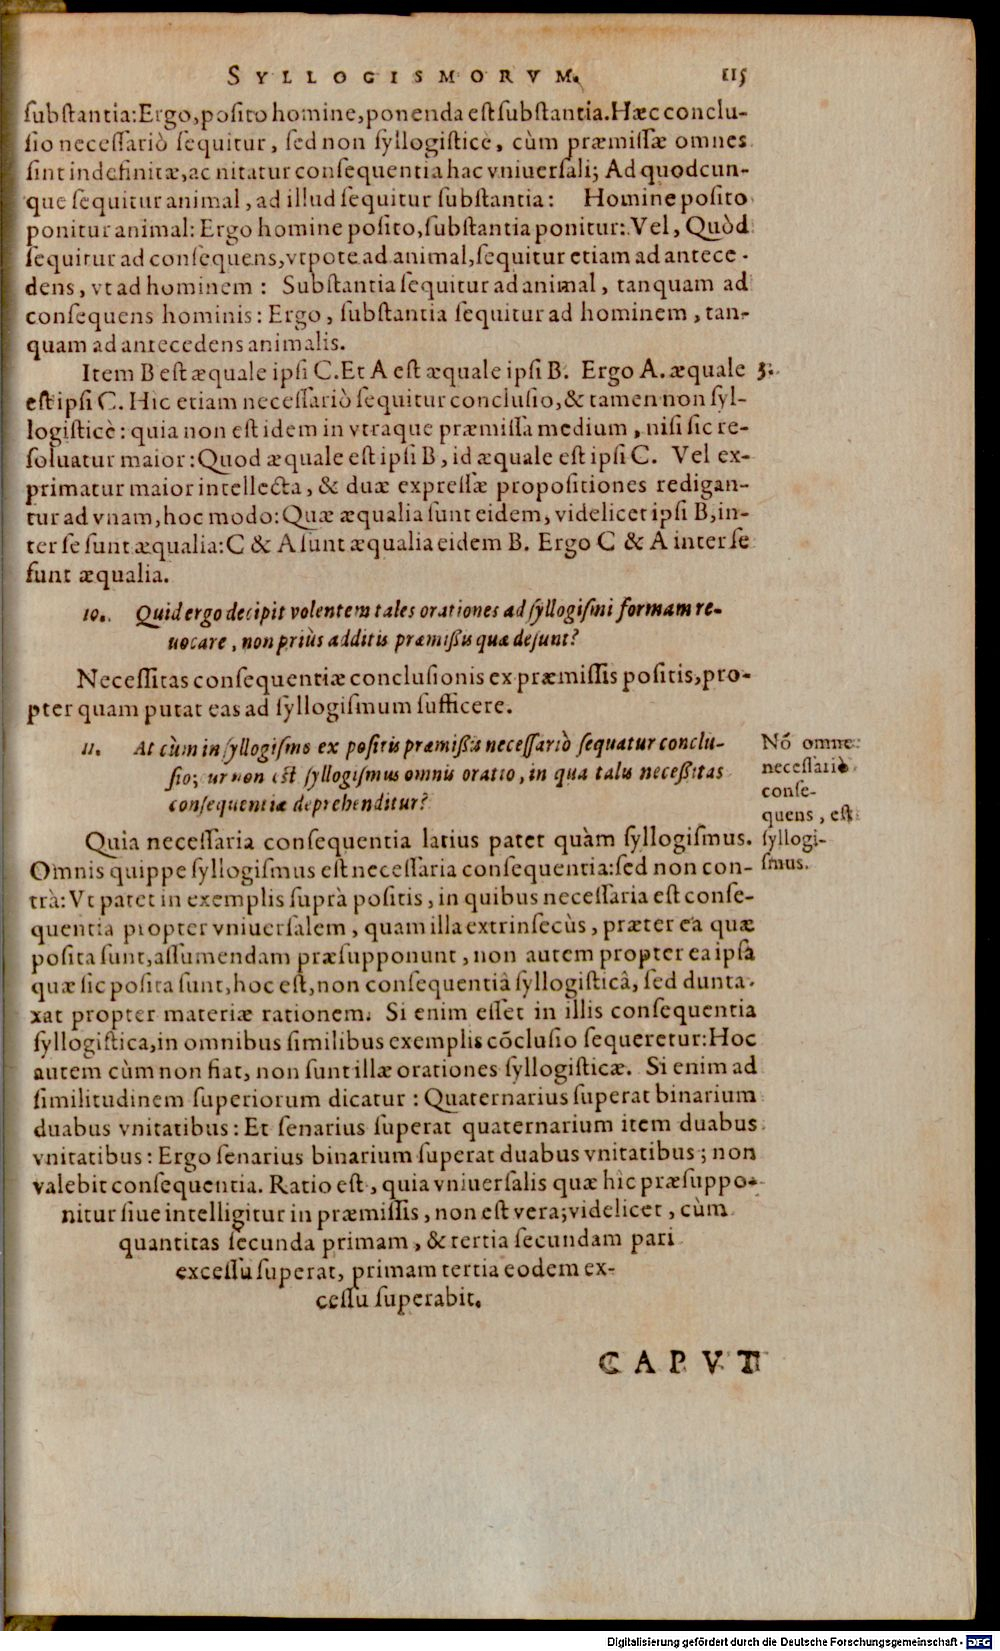 SYLLOGISMORVM. 115
ſubſtantia: Ergo, poſito homine, ponenda eſt ſubſtantia. Hæc conclu-
ſio neceſſariò ſequitur, ſed non ſyllogiſticè, cùm præmiſſæ omnes
ſint indefinitæ, ac nitatur conſequentia hac vniuerſali; Ad quodcun-
que ſequitur animal, ad illud ſequitur ſubſtantia: Homine poſito
ponitur animal: Ergo homine poſito, ſubſtantia ponitur: Vel, Quòd
ſequitur ad conſequens, vtpote ad animal, ſequitur etiam ad antece-
dens, vt ad hominem: Subſtantia ſequitur ad animal, tanquam ad
conſequens hominis: Ergo, ſubſtantia ſequitur ad hominem, tan-
quam ad antecedens animalis.
Item B eſt æquale ipſi C. Et A eſt æquale ipſi B. Ergo A. æquale 3.
eſt ipſi C. Hic etiam neceſſariò ſequitur concluſio, & tamen non ſyl-
logiſticè: quia non eſt idem in vtraque præmiſſa medium, niſi ſic re-
ſoluatur maior: Quod æquale eſt ipſi B, id æquale eſt ipſi C. Vel ex-
primatur maior intellecta, & duæ expreſſæ propoſitiones redigan-
tur ad vnam, hoc modo: Quæ æqualia ſunt eidem, videlicet ipſi B, in-
ter ſe ſunt æqualia: C & A ſunt æqualia eidem B. Ergo C & A inter ſe
ſunt æqualia.
10. Quid ergo decipit volentem tales orationes ad ſyllogiſmi formam re-
uocare, non priùs additis præmißis quæ deſunt?
Neceſſitas conſequentiæ concluſionis ex præmiſſis poſitis, pro-
pter quam putat eas ad ſyllogiſmum ſufficere.
11. At cùm in ſyllogiſmo ex poſitis præmißis neceſſariò ſequatur conclu-
ſio; cur non eſt ſyllogiſmus omnis oratio, in qua talis neceßitas
conſequentiæ deprehenditur?
Nō omne
neceſſariò
conſe-
quens, eſt
ſyllogi-
ſmus.
Quia neceſſaria conſequentia latius patet quàm ſyllogiſmus.
Omnis quippe ſyllogiſmus eſt neceſſaria conſequentia: ſed non con-
trà: Vt patet in exemplis ſuprà poſitis, in quibus neceſſaria eſt conſe-
quentia propter vniuerſalem, quam illa extrinſecùs, præter ea quæ
poſita ſunt, aſſumendam præſupponunt, non autem propter ea ipſa
quæ ſic poſita ſunt, hoc eſt, non conſequentiâ ſyllogiſticâ, ſed dunta-
xat propter materiæ rationem. Si enim eſſet in illis conſequentia
ſyllogiſtica, in omnibus ſimilibus exemplis cōcluſio ſequeretur: Hoc
autem cùm non fiat, non ſunt illæ orationes ſyllogiſticæ. Si enim ad
ſimilitudinem ſuperiorum dicatur: Quaternarius ſuperat binarium
duabus vnitatibus: Et ſenarius ſuperat quaternarium item duabus
vnitatibus: Ergo ſenarius binarium ſuperat duabus vnitatibus; non
valebit conſequentia. Ratio eſt, quia vniuerſalis quæ hîc præſuppo-
nitur ſiue intelligitur in præmiſſis, non eſt vera; videlicet, cùm
quantitas ſecunda primam, & tertia ſecundam pari
exceſſu ſuperat, primam tertia eodem ex-
ceſſu ſuperabit.
CAPVT
Digitalisierung gefördert durch die Deutsche Forschungsgemeinschaft - DFG